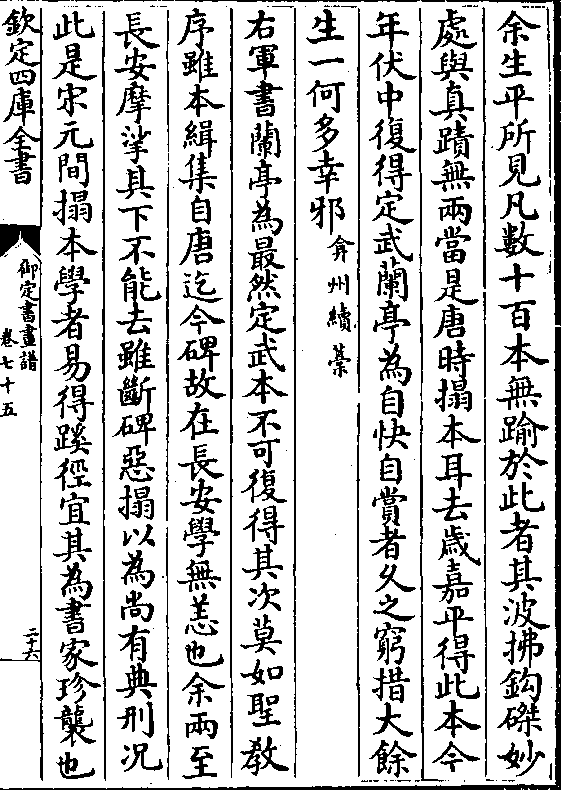 余生平所見凡數十百本無踰於此者其波拂鈎磔妙
處與真蹟無兩當是唐時搨本耳去歲嘉平得此本今
年伏中復得定武蘭亭為自快自賞者久之窮措大餘
生一何多幸邪弇州續藳
右軍書蘭亭為最然定武本不可復得其次莫如聖教
序雖本緝集自唐迄今碑故在長安學無恙也余兩至
長安摩挲其下不能去雖斷碑惡搨以為尚有典刑况
此是宋元間搨本學者易得蹊徑宜其為書家珍襲也
欽定四庫全書
御定書畫譜
卷七十五
二十六